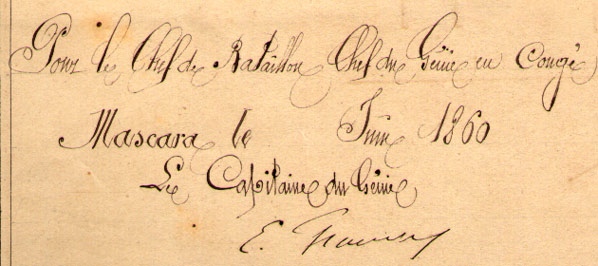 Pour le Chef de Bataillon Chef du Génie en Congé
Mascara le Juin 1860
Le Capitaine du Génie
E.